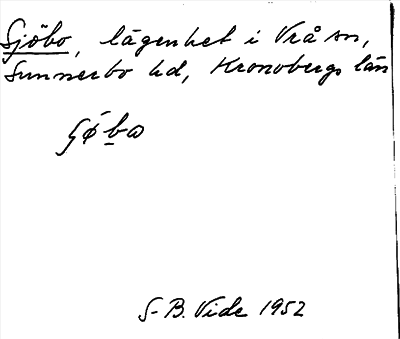 Sjöbo, lägenhet i Vrå sn,
Sunnerbo hd, Kronobergs län
S-B. Vide 1952